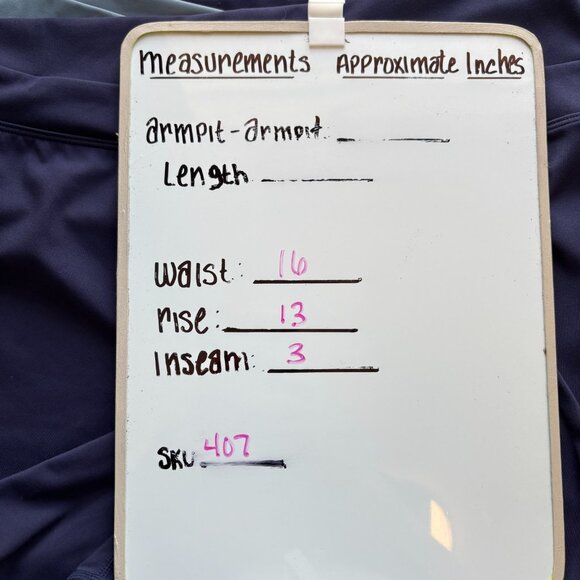 measurements Approximate Inches
armpit-armpit
Length
waist: 16
rise: 13
Inseam: 3
SKU 407